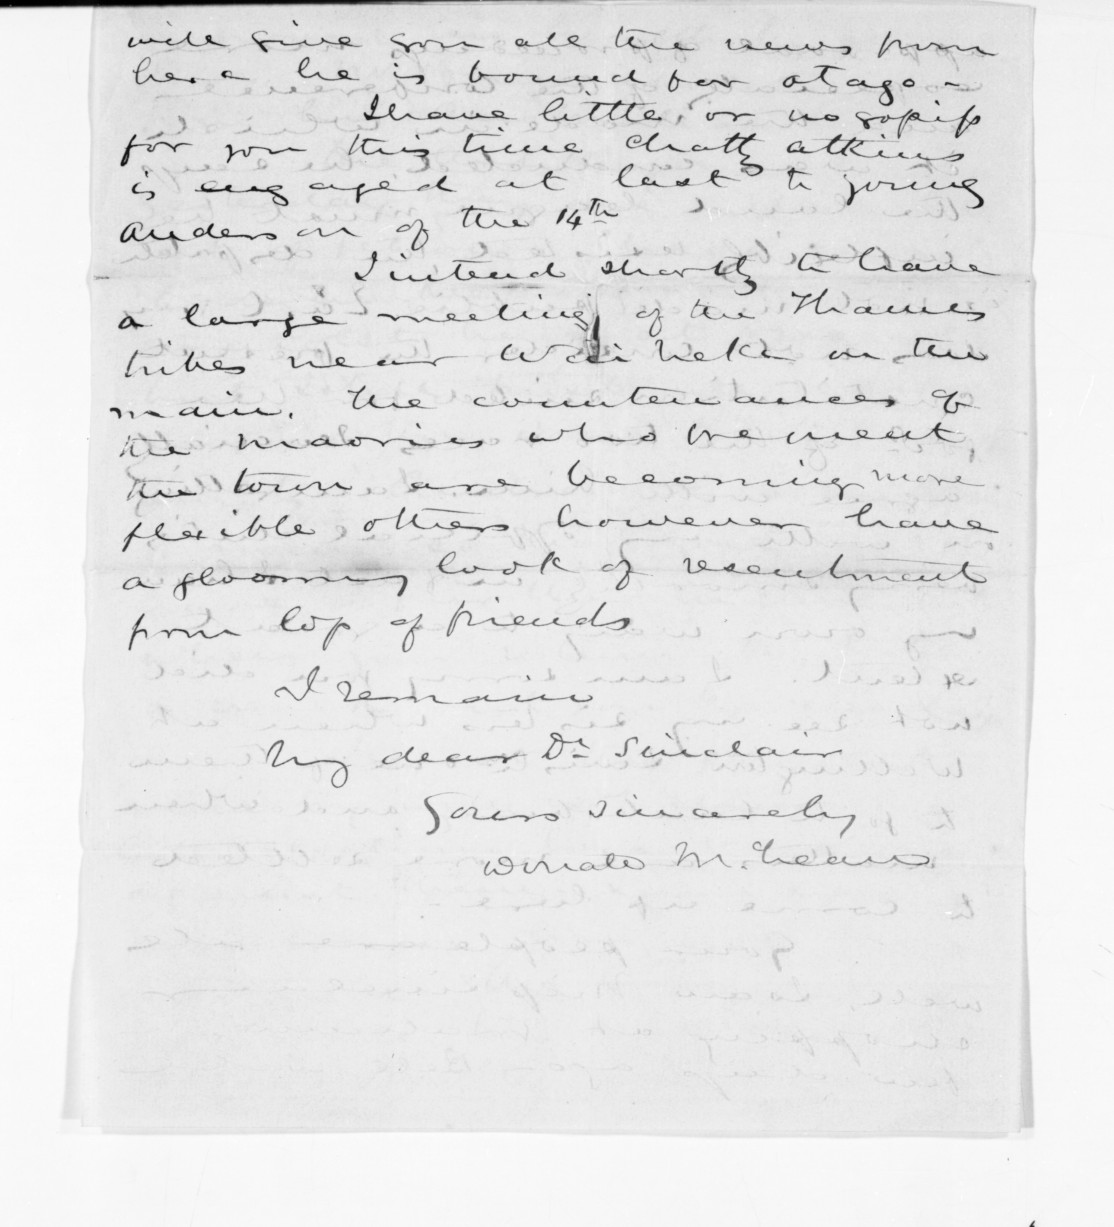 will give you all the news from
here he is bound for otago -
I have little or no gossip
for you this time Chatty atkins
is engaged at last to young
Anderson of the 14th
I intend shortly to have
a large meeting of the Thames
tribes near Wai heke on the
main. The countenances of
the maories who frequent
the town are becoming more
flexible others however have
a gloomy look of resentment
from lop of friends
I remain
My dear Dr Sinclair
Yours Sincerely
Donald McLean